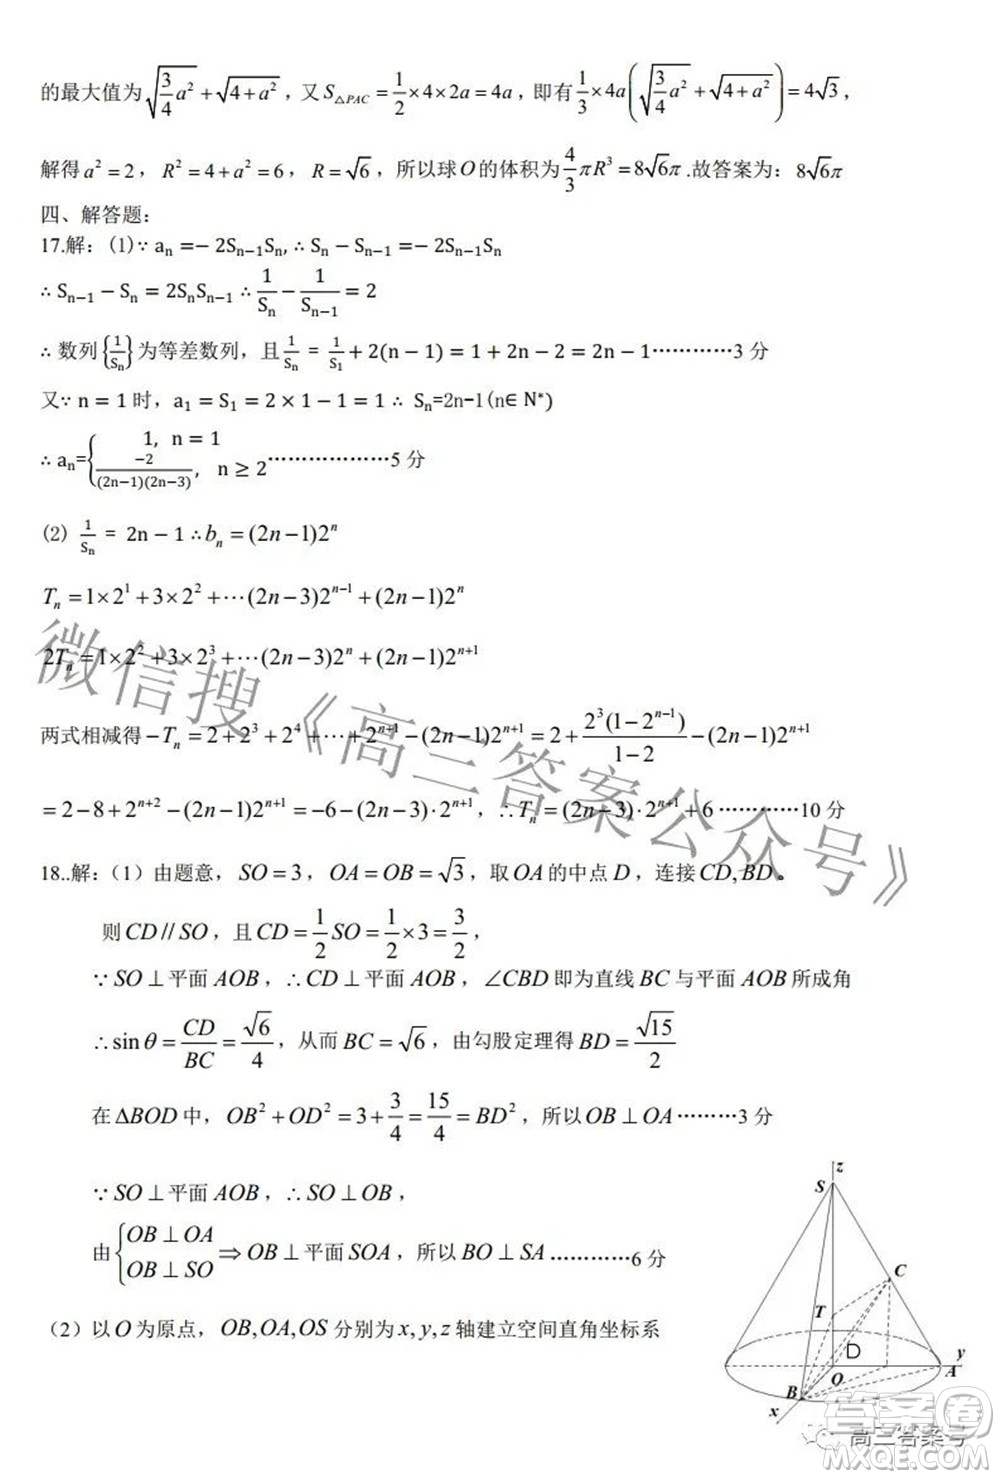 的最大值为√(3/4 a²)+√(4+a²)，又S△PAC=1/2×4×2a=4a，即有1/3×4a(√(3/4 a²)+√(4+a²))=4√3，
解得a²=2，R²=4+a²=6，R=√6，所以球O的体积为4/3πR³=8√6π.故答案为：8√6π
四、解答题：
17.解：(1)∵ aₙ=−2Sₙ₋₁Sₙ,∴ Sₙ−Sₙ₋₁=−2Sₙ₋₁Sₙ
∴ Sₙ₋₁−Sₙ=2SₙSₙ₋₁ ∴ 1/Sₙ−1/Sₙ₋₁=2
∴ 数列{1/Sₙ}为等差数列，且1/Sₙ = 1/S₁+2(n−1)=1+2n−2=2n−1…………3 分
又∵ n=1时，a₁=S₁=2×1−1=1 ∴ Sₙ=2n−1(n∈N*)
∴ aₙ={1, n=1; −2/((2n−1)(2n−3)), n≥2………………5 分
(2) 1/Sₙ = 2n−1 ∴bₙ=(2n−1)2ⁿ
Tₙ=1×2¹+3×2²+⋯(2n−3)2ⁿ⁻¹+(2n−1)2ⁿ
2Tₙ=1×2²+3×2³+⋯(2n−3)2ⁿ+(2n−1)2ⁿ⁺¹
两式相减得−Tₙ=2+2³+2⁴+⋯+2ⁿ⁺¹−(2n−1)2ⁿ⁺¹=2+2³(1−2ⁿ⁻¹)/(1−2)−(2n−1)2ⁿ⁺¹
=2−8+2ⁿ⁺²−(2n−1)2ⁿ⁺¹=−6−(2n−3)·2ⁿ⁺¹，∴Tₙ=(2n−3)·2ⁿ⁺¹+6…………10 分
18..解：（1）由题意，SO=3，OA=OB=√3，取OA的中点D，连接CD,BD。
则CD//SO，且CD=1/2SO=1/2×3=3/2，
∵SO⊥平面AOB，∴CD⊥平面AOB，∠CBD即为直线BC与平面AOB所成角
∴sinθ=CD/BC=√6/4，从而BC=√6，由勾股定理得BD=√15/2
在ΔBOD中，OB²+OD²=3+3/4=15/4=BD²，所以OB⊥OA………3 分
∵SO⊥平面AOB，∴SO⊥OB，
由{OB⊥OA; OB⊥SO⇒OB⊥平面SOA，所以BO⊥SA…………6 分
（2）以O为原点，OB,OA,OS分别为x,y,z轴建立空间直角坐标系
z
S
C
T
D
y
O
A
B
x
微信搜《高三答案公众号》
答案圈
高三答案号
MXQE.COM